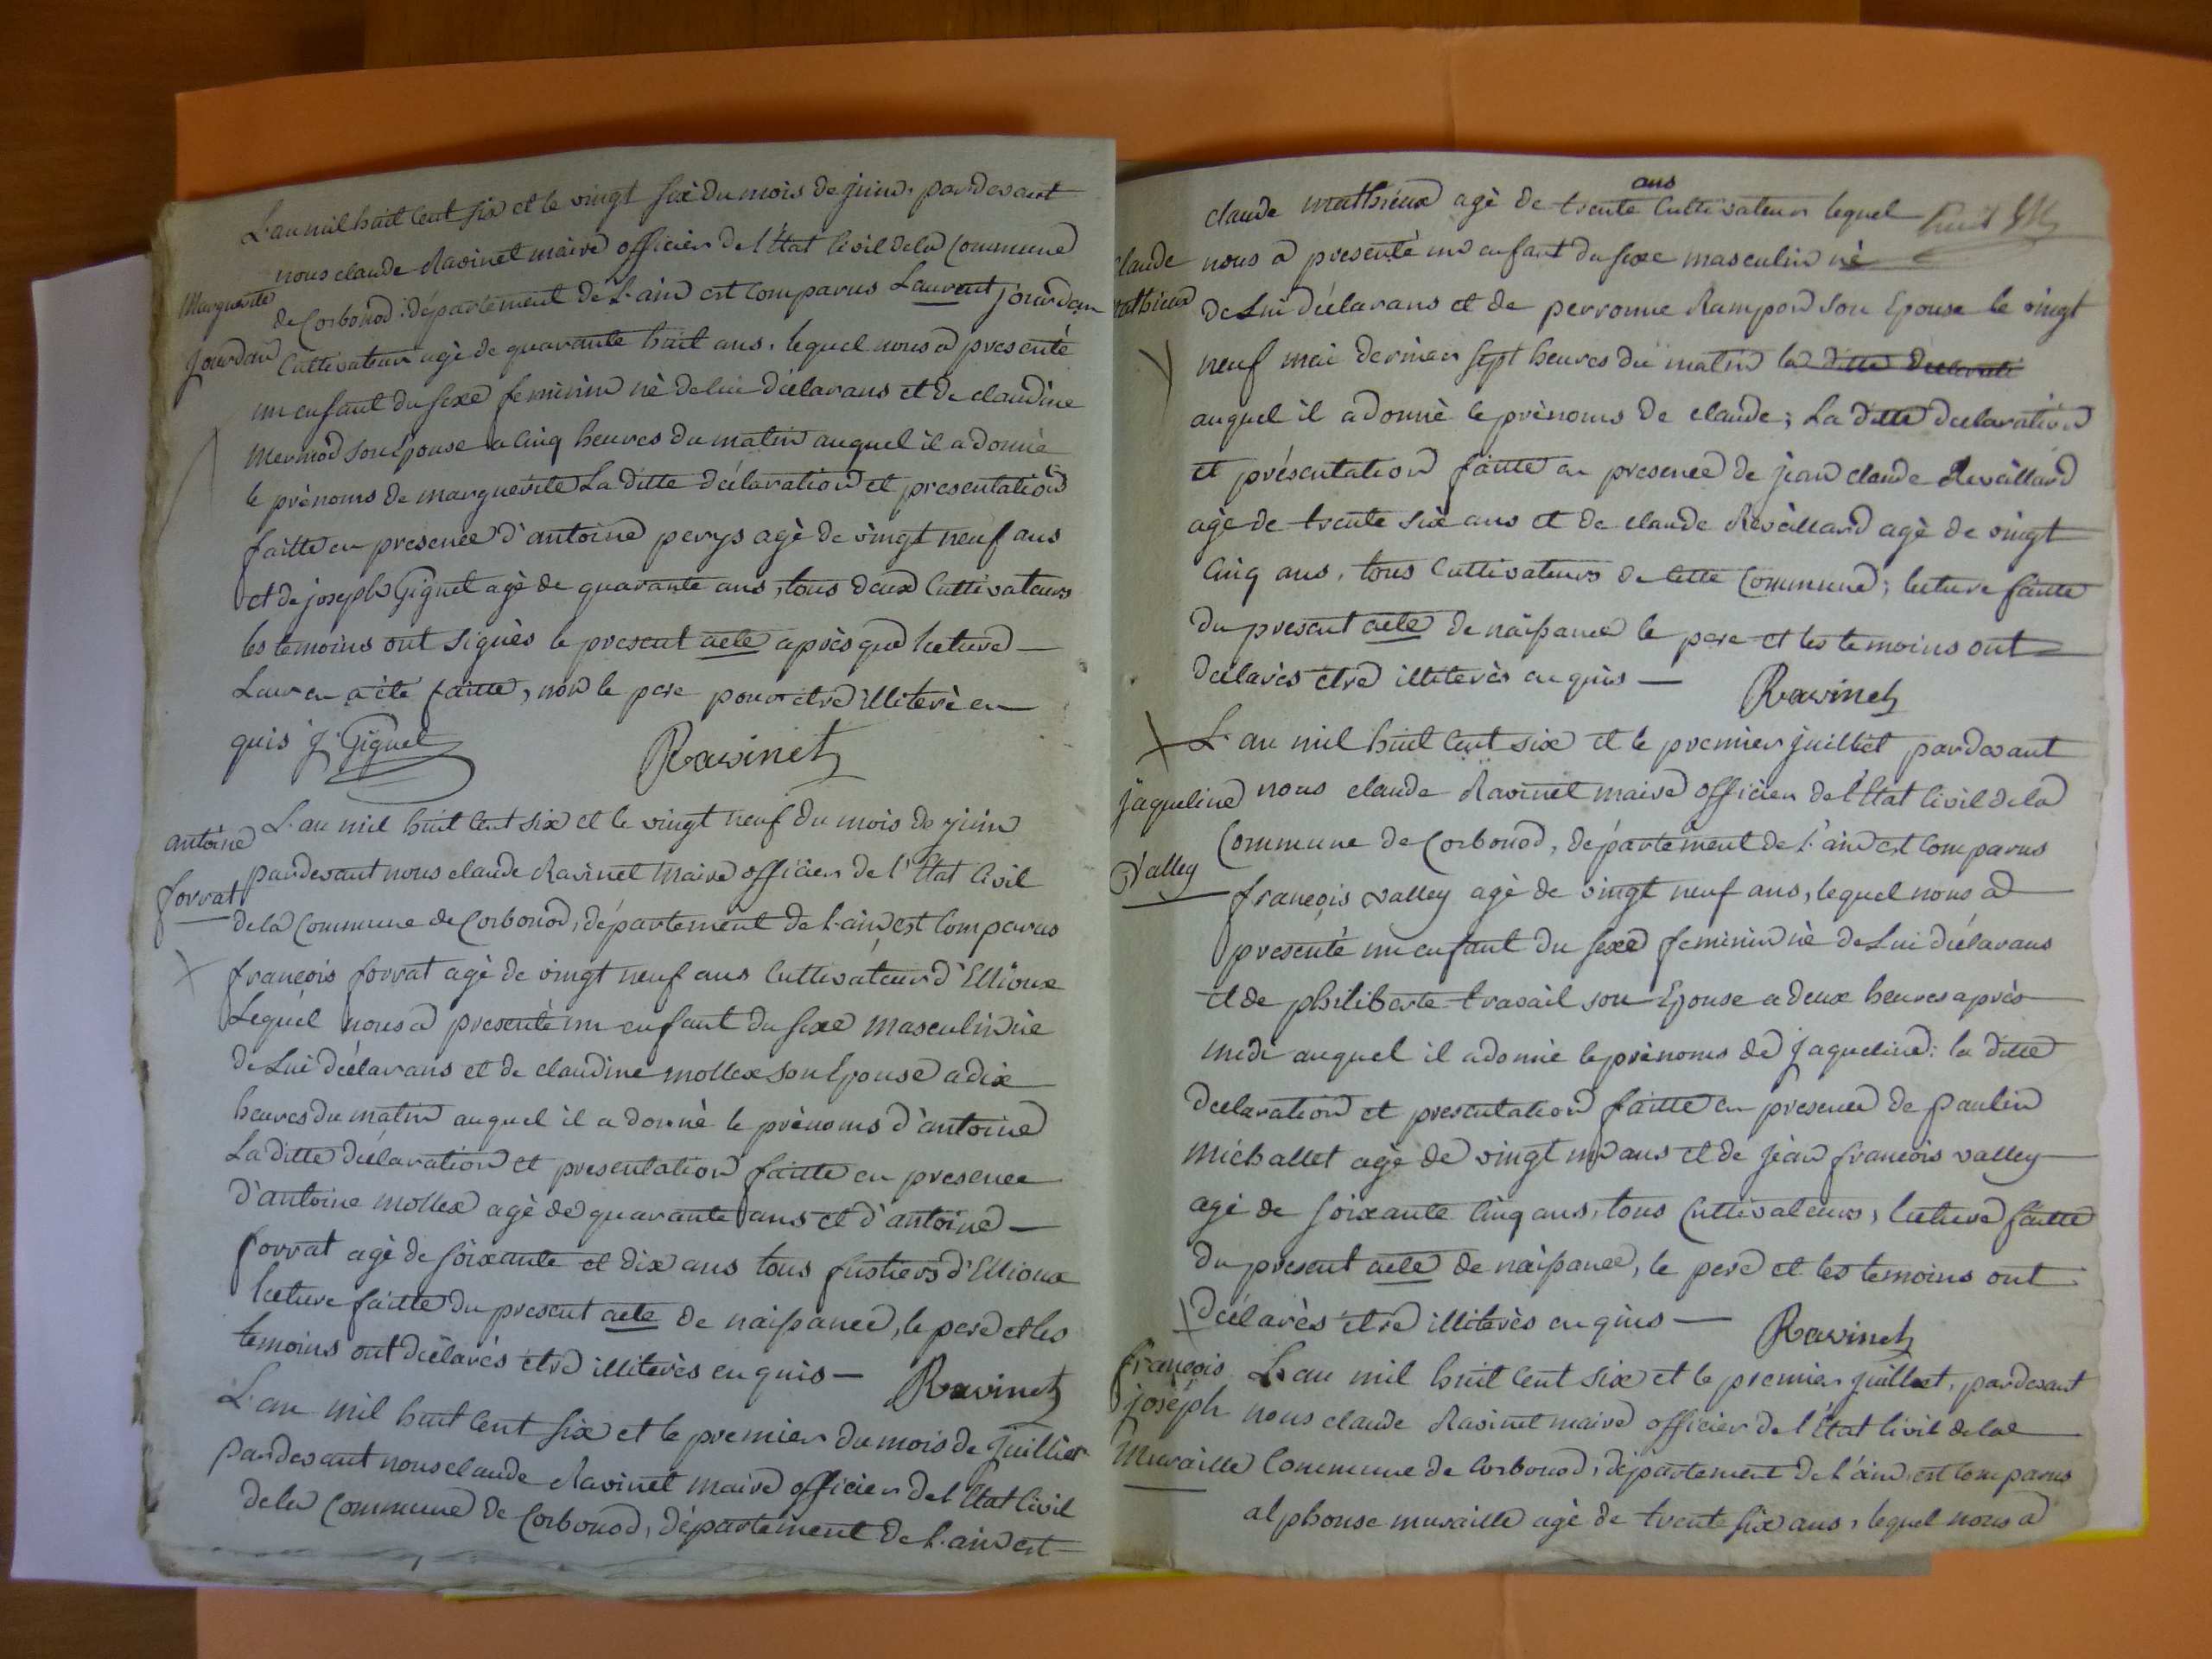 L'an mil huit cent six et le vingt six du mois de juin. pardevant
nous claude Ravinet maire officier de l'État Civil de la Commune
Marguerite
de Corbonod: département de L'ain est comparus Laurent jourdan
jourdan
Cultivateur agè de quarante huit ans. lequel nous a presenté
un enfant du sexe feminin nè de lui déclarans et de claudine
mermod son Epouse a cinq heures du matin auquel il a donnè
le prènoms de marguerite La ditte déclaration et presentation
faitte en presence d'antoine perys agè de vingt neuf ans
et de joseph Giguet agè de quarante ans, tous deux Cultivateurs
les temoins ont signès le present acte après que lecture
Leur en a été faitte, non le pere pour etre illiterè en
quis J. Giguet
Ravinet
L'an mil huit cent six et le vingt neuf du mois de juin
antoine
pardevant nous claude Ravinet maire officier de l'Etat Civil
forrat
de la Commune de Corbonod, département de L'ain est Comparus
françois forrat agè de vingt neuf ans Cultivateur d'Ellioux
Lequel nous a presentè un enfant du sexe masculin nè
de Lui déclarans et de claudine mollex son Epouse a dix
heures du matin auquel il a donnè le prènoms d'antoine
La ditte déclaration et presentation faitte en presence
d'antoine mollex agè de quarante ans et d'antoine
forrat agè de soixante et dix ans tous fustiers d'Ellioux
lecture faitte du present acte de naissance, le pere et les
temoins ont déclarés etre illiterès enquis
Ravinet
L'an mil huit cent six et le premier du mois de juillier
pardevant nous claude Ravinet maire officier de l'Etat Civil
de la Commune de Corbonod, département de L'ain est
claude mathieux agè de trente ans Cultivateur lequel
claude
nous a presentè un enfant du sexe masculin nè
mathieux
de Lui déclarans et de perronne Rampon son Epouse le vingt
neuf mai dernier sept heures du matin la ditte declarati
auquel il a donnè le prènoms de claude; La ditte declaration
et présentation faitte en presence de jean claude Revillard
agè de trente six ans et de claude Revillard agè de vingt
Cinq ans, tous Cultivateurs de cette Commune; lecture faitte
du present acte de naissance le pere et les temoins ont
declarès etre illiterès enquis
Ravinet
L'an mil huit cent six et le premier juillet pardevant
jaqueline
nous claude Ravinet maire officier de l'Etat Civil de la
Commune de Corbonod, département de L'ain est comparus
Valley
françois valley agè de vingt neuf ans, lequel nous a
presentè un enfant du sexe feminin nè de Lui déclarans
et de philiberte travail son Epouse a deux heures après
midi auquel il a donnè le prènoms de jaqueline: la ditte
declaration et presentation faitte en presence de paulin
michallet agè de vingt un ans et de jean françois valley
agè de soixante cinq ans, tous Cultivateurs, lecture faitte
du present acte de naissance, le pere et les temoins ont
déclarès etre illiterès enquis
Ravinet
françois
L'an mil huit cent six et le premier juillet, pardevant
joseph
nous claude Ravinet maire officier de l'État Civil de la
muraille
Commune de Corbonod, département de l'ain, est comparus
alphonse muraille agè de trente six ans, lequel nous a